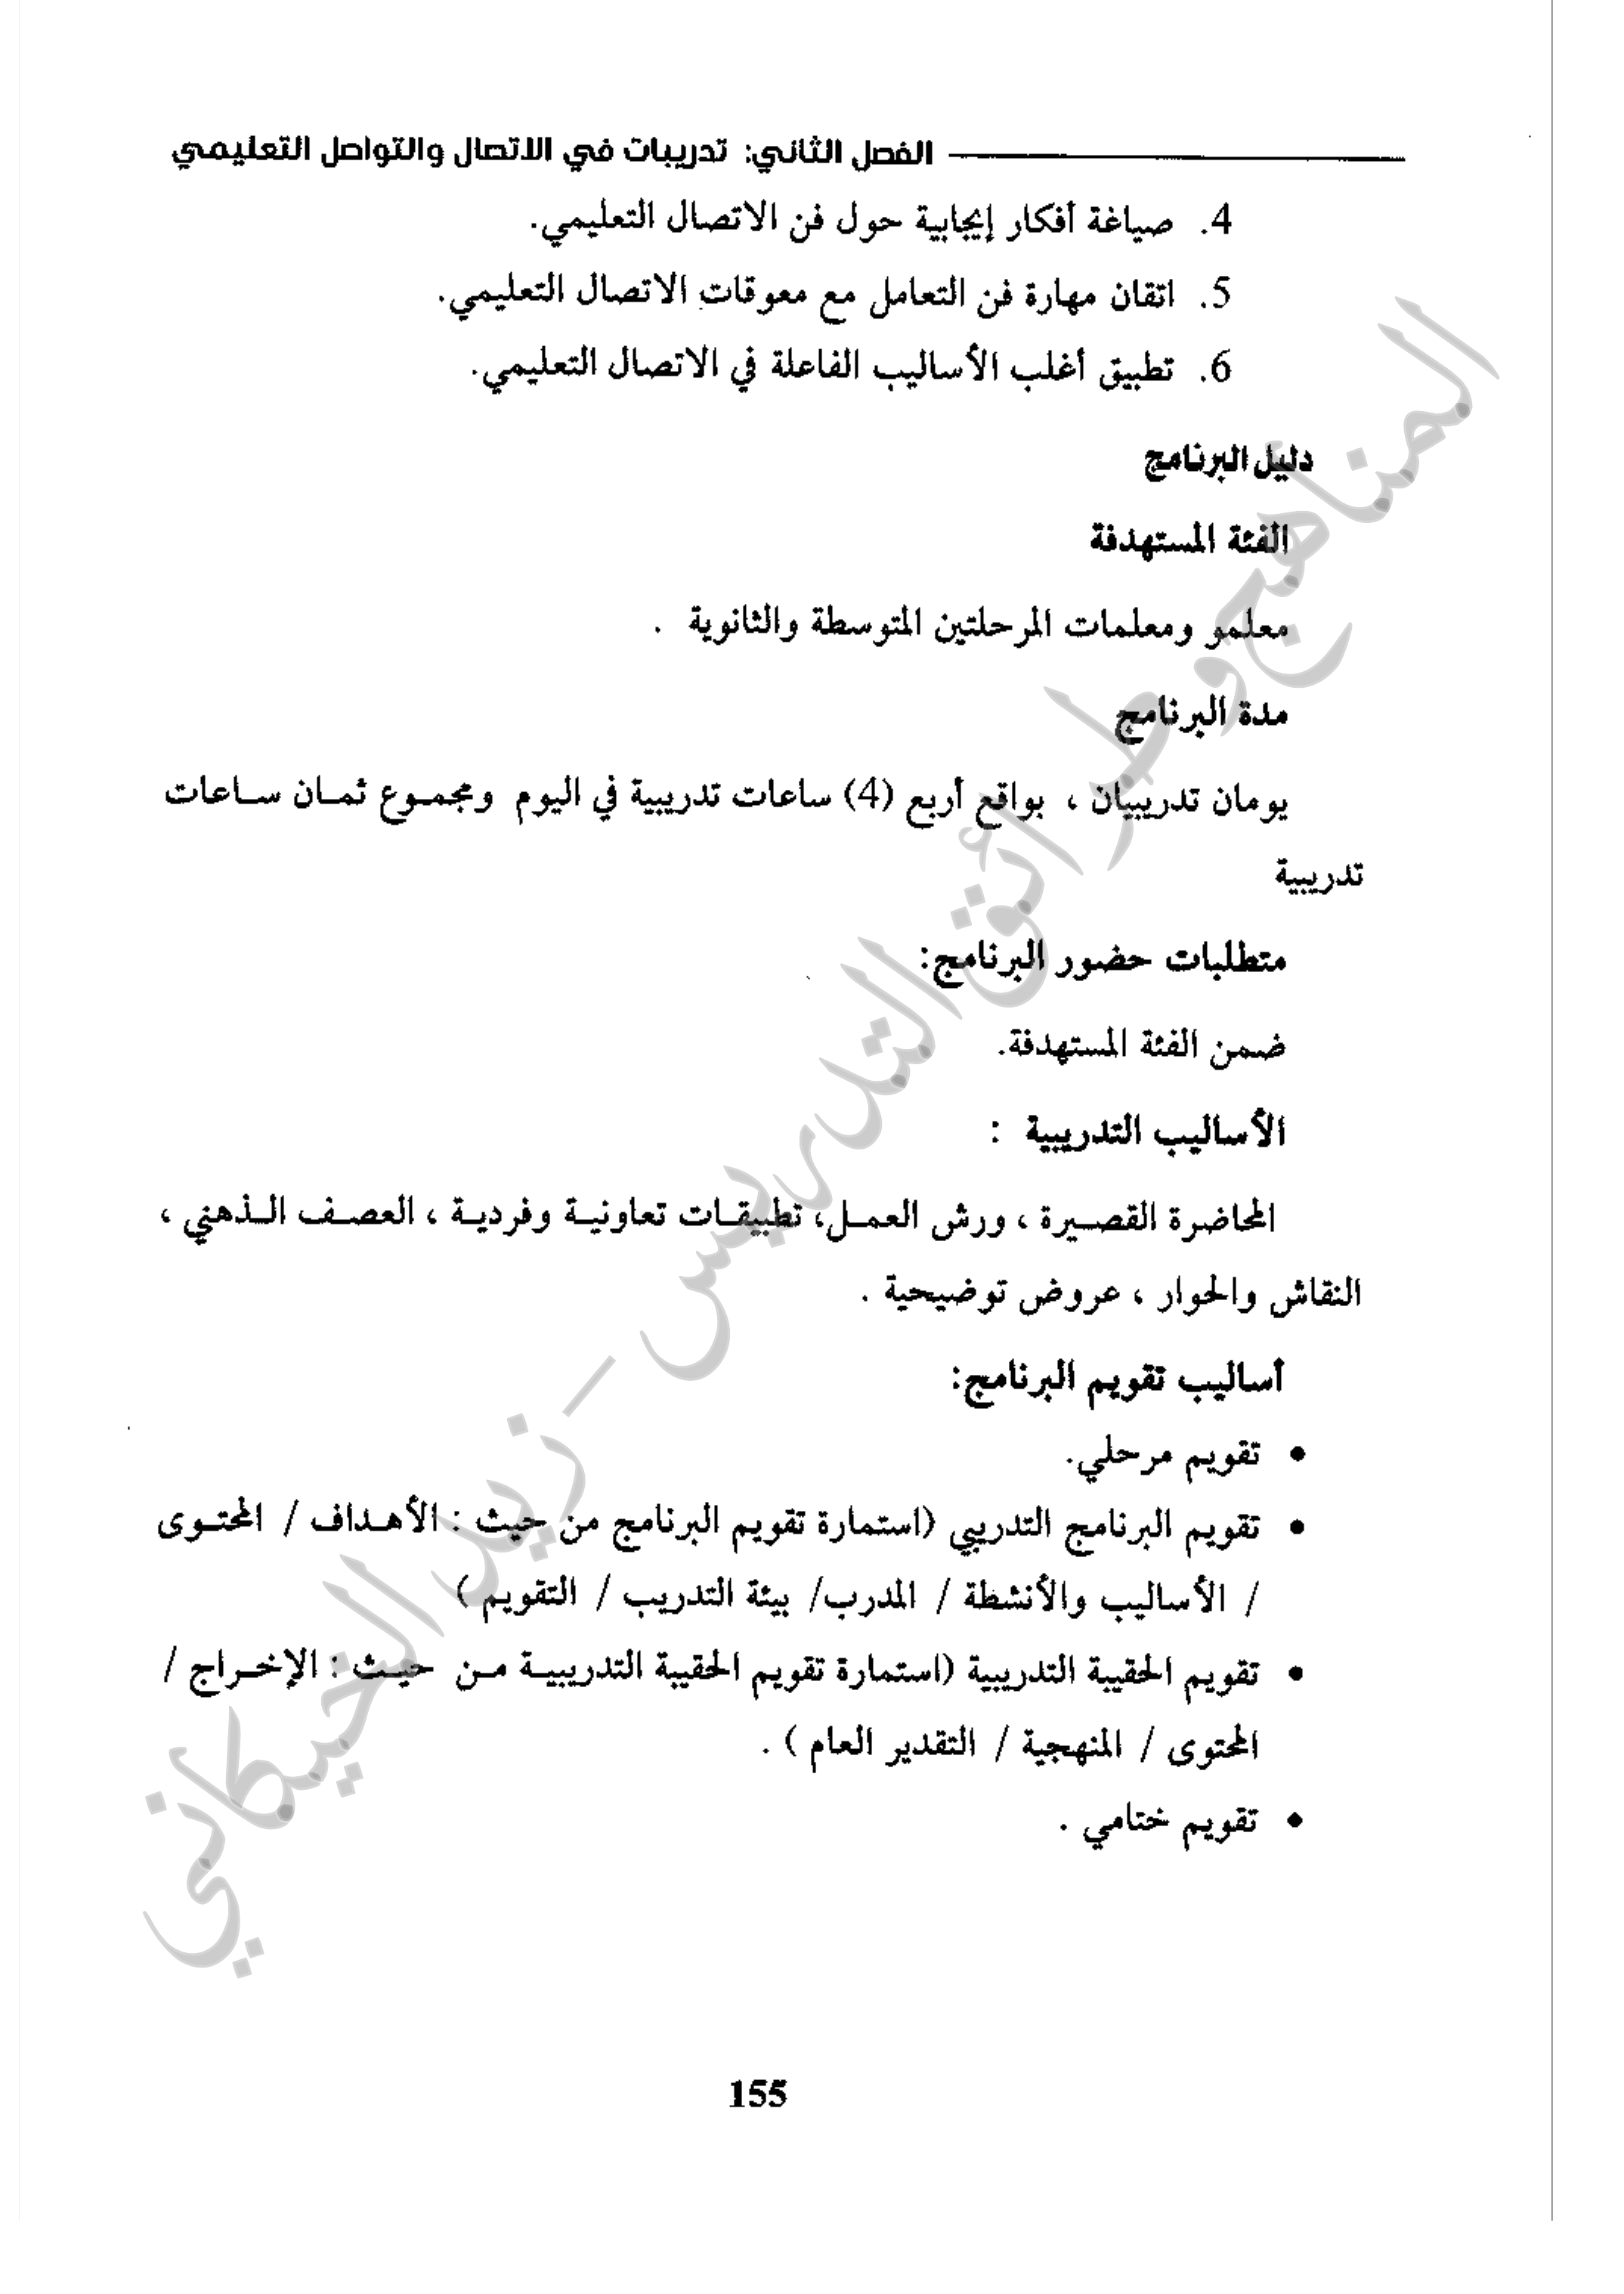 الفصل الثاني: تدريبات في الاتصال والتواصل التعليمي
4. صياغة أفكار إيجابية حول فن الاتصال التعليمي.
5. اتقان مهارة فن التعامل مع معوقات الاتصال التعليمي.
6. تطبيق أغلب الأساليب الفاعلة في الاتصال التعليمي.
دليل البرنامج
الفئة المستهدفة
معلمو ومعلمات المرحلتين المتوسطة والثانوية .
مدة البرنامج
يومان تدريبيان ، بواقع أربع (4) ساعات تدريبية في اليوم ومجموع ثمان ساعات
تدريبية
متطلبات حضور البرنامج:
ضمن الفئة المستهدفة.
الأساليب التدريبية :
المحاضرة القصيرة ، ورش العمل، تطبيقات تعاونية وفردية ، العصف الذهني ،
النقاش والحوار ، عروض توضيحية .
أساليب تقويم البرنامج:
• تقويم مرحلي.
• تقويم البرنامج التدريبي (استمارة تقويم البرنامج من حيث : الأهداف / المحتوى
/ الأساليب والأنشطة / المدرب/ بيئة التدريب / التقويم )
• تقويم الحقيبة التدريبية (استمارة تقويم الحقيبة التدريبية من حيث : الإخراج /
المحتوى / المنهجية / التقدير العام ) .
• تقويم ختامي .
المناهج وطرائق التدريس - زيد الخيكاني
155